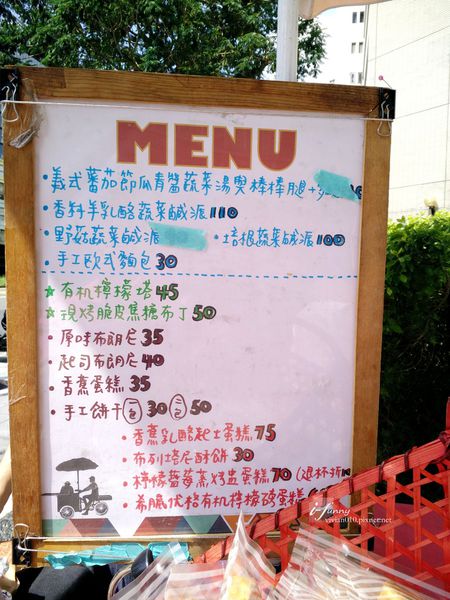 MENU
• 義式蕃茄節瓜青醬蔬菜湯與棒棒腿+
• 香料羊乳酪蔬菜鹹派 110
• 野菇蔬菜鹹派 • 培根蔬菜鹹派 100
• 手工欧式麵包 30
★ 有机檸檬塔 45
★ 現烤脆皮焦糖布丁 50
• 原味布朗尼 35
• 起司布朗尼 40
• 香蕉蛋糕 35
• 手工餅干 一包 30 二包 50
• 香蕉乳酪起士蛋糕 75
• 布列塔尼酥餅 30
• 檸檬藍莓蒸烤盅蛋糕 70 (退杯折
• 希臘优格有机檸檬磅蛋糕
Jenny
vivian010.pixnet.net